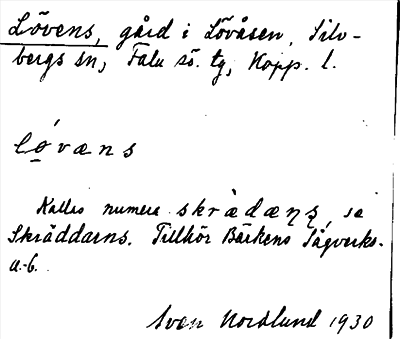 Lövens, gård i Lövåsen, Silv-
bergs sn, Falu sö. tg, Kopp. l.
lǫ́væns
Kallas numera skrädæn̥s̥, se
Skräddarns. Tillhör Bärkens Sågverks-
a.-b.
Sven Nordlund 1930